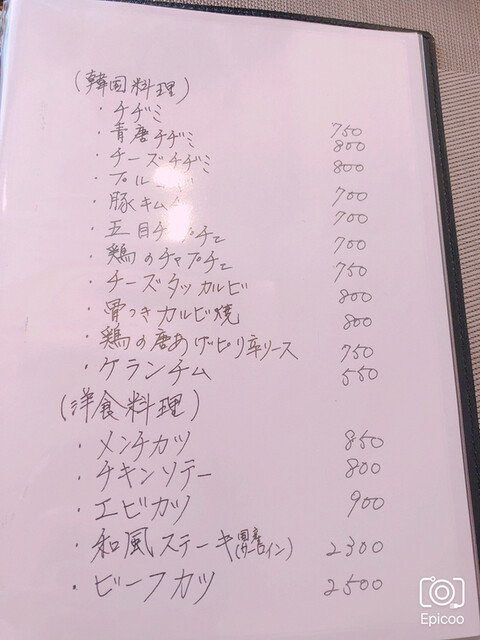 (韓国料理)
・チヂミ 750
・青唐チヂミ 800
・チーズチヂミ 800
・プル 700
・豚キム 700
・五目チャプチェ 700
・鶏のチャプチェ 750
・チーズタッカルビ 800
・骨つきカルビ焼 800
・鶏の唐あげピリ辛ソース 750
・ケランチム 550
(洋食料理)
・メンチカツ 850
・チキンソテー 800
・エビカツ 900
・和風ステーキ(国産サーロイン) 2300
・ビーフカツ 2500
Epicoo